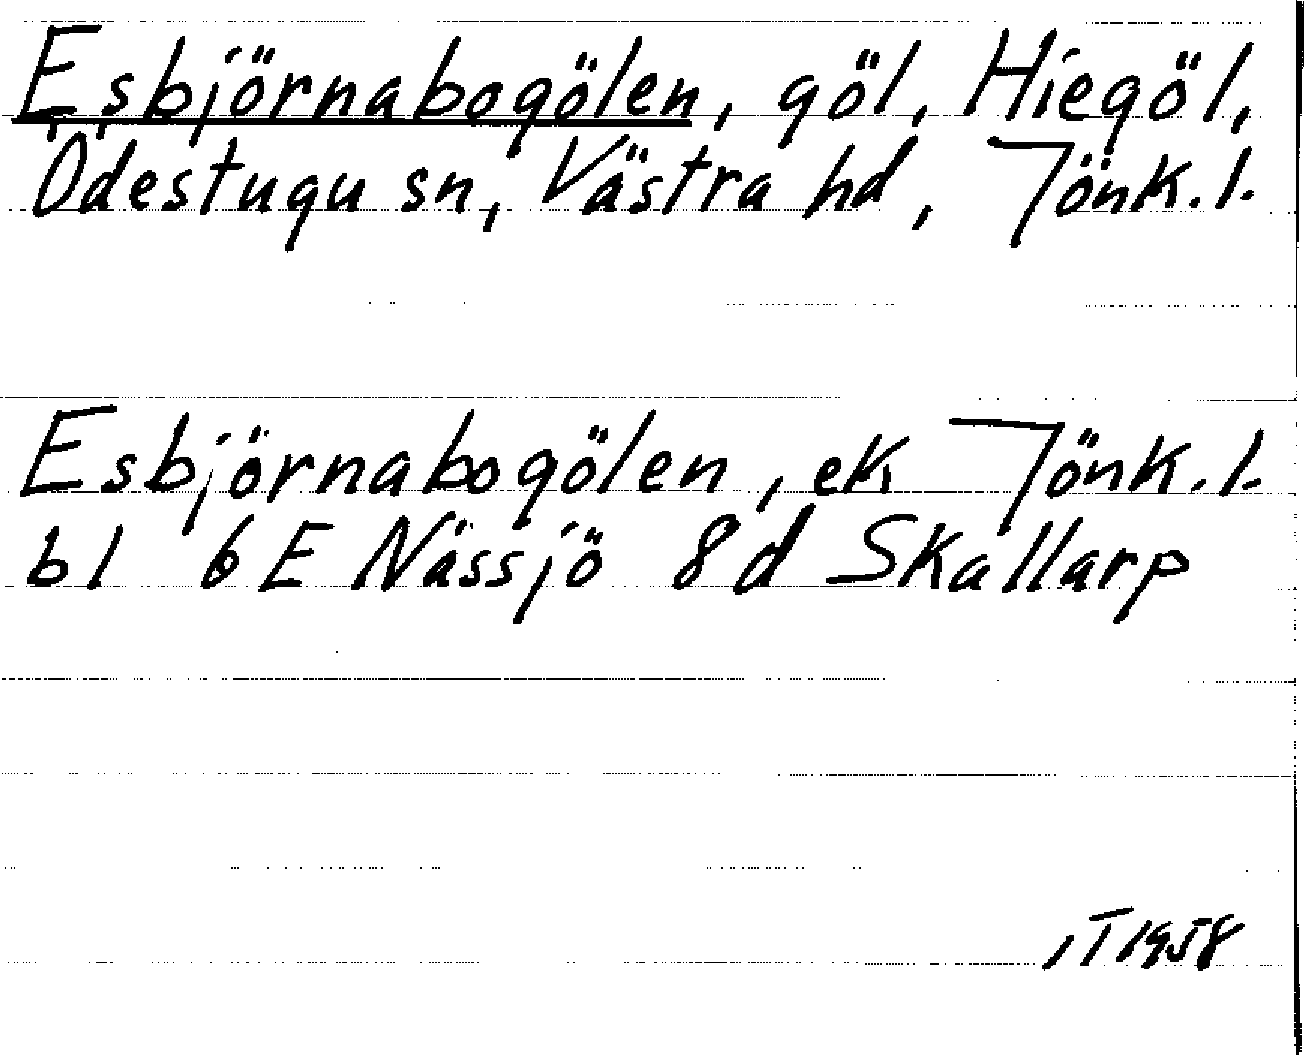 Esbjörnabogölen, göl, Hiegöl,
Ödestugu sn, Västra hd, Jönk.l.
Esbjörnabogölen, ek Jönk.l.
bl 6E Nässjö 8d Skallarp
,T1958